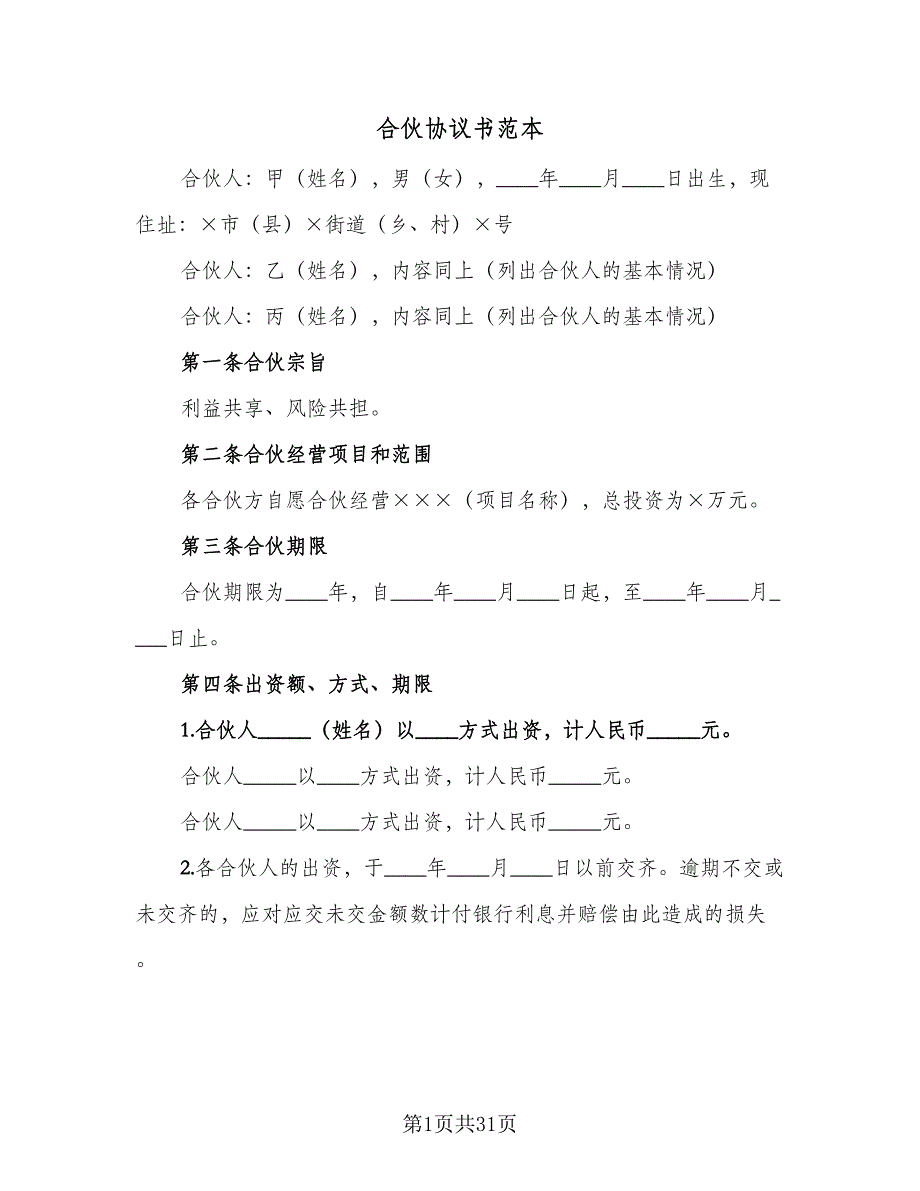 合伙协议书范本
合伙人：甲（姓名），男（女），____年____月____日出生，现
住址：×市（县）×街道（乡、村）×号
合伙人：乙（姓名），内容同上（列出合伙人的基本情况）
合伙人：丙（姓名），内容同上（列出合伙人的基本情况）
第一条合伙宗旨
利益共享、风险共担。
第二条合伙经营项目和范围
各合伙方自愿合伙经营×××（项目名称），总投资为×万元。
第三条合伙期限
合伙期限为____年，自____年____月____日起，至____年____月_
___日止。
第四条出资额、方式、期限
1.合伙人_____（姓名）以____方式出资，计人民币_____元。
合伙人_____以____方式出资，计人民币_____元。
合伙人_____以____方式出资，计人民币_____元。
2.各合伙人的出资，于____年____月____日以前交齐。逾期不交或
未交齐的，应对应交未交金额数计付银行利息并赔偿由此造成的损失
。
第1页共31页